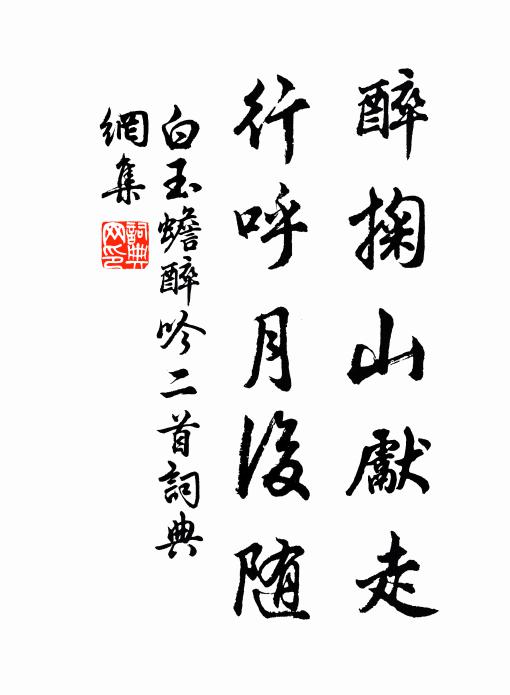 醉掬山獻走
行呼月後随
白玉蟾醉吟二首詞典
網集
詞典
网印